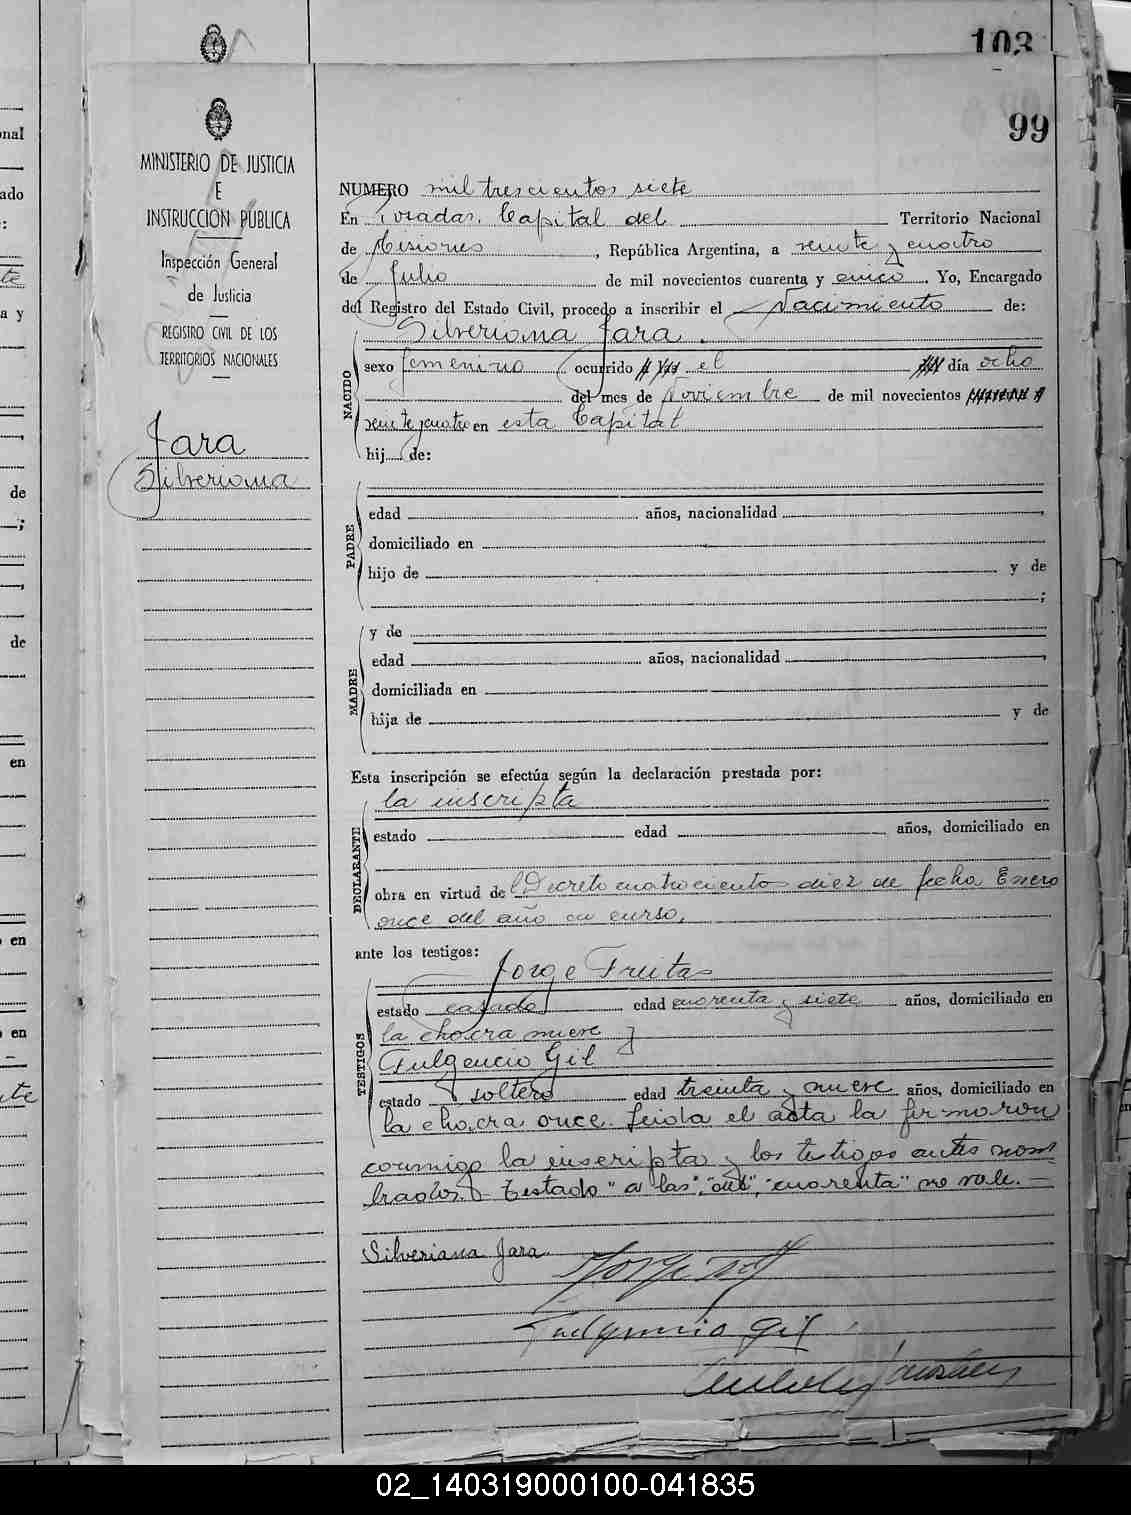 103
99
MINISTERIO DE JUSTICIA
E
INSTRUCCION PUBLICA
Inspección General
de Justicia
REGISTRO CIVIL DE LOS
TERRITORIOS NACIONALES
Jara
Silveriana
NUMERO mil trescientos siete
En Posadas, Capital del Territorio Nacional
de Misiones, República Argentina, a veinte y cuatro
de Julio de mil novecientos cuarenta y cinco. Yo, Encargado
del Registro del Estado Civil, procedo a inscribir el Nacimiento de:
Silveriana Jara.
NACIDO
sexo femenino ocurrido el día ocho
del mes de Noviembre de mil novecientos
veinte y cuatro en esta Capital
hij de:
PADRE
edad años, nacionalidad ,
domiciliado en
hijo de y de
;
MADRE
y de
edad años, nacionalidad ,
domiciliada en
hija de y de
Esta inscripción se efectúa según la declaración prestada por:
DECLARANTE
la inscripta
estado edad años, domiciliado en
obra en virtud de Decreto cuatrocientos diez de fecha Enero
once del año en curso,
ante los testigos:
TESTIGOS
Jorge Freitas
estado casado edad cuarenta y siete años, domiciliado en
la chacra nueve y
Fulgencio Gil
estado soltero edad treinta y nueve años, domiciliado en
la chacra once. Leida el acta la firmaron
conmigo la inscripta y los testigos antes nom
brados. Testado "a las", "cuarenta" no vale.—
Silveriana Jara
Fulgencio Gil
nal
ado
:
te
a y
de
;
de
en
en
en
02_140319000100-041835